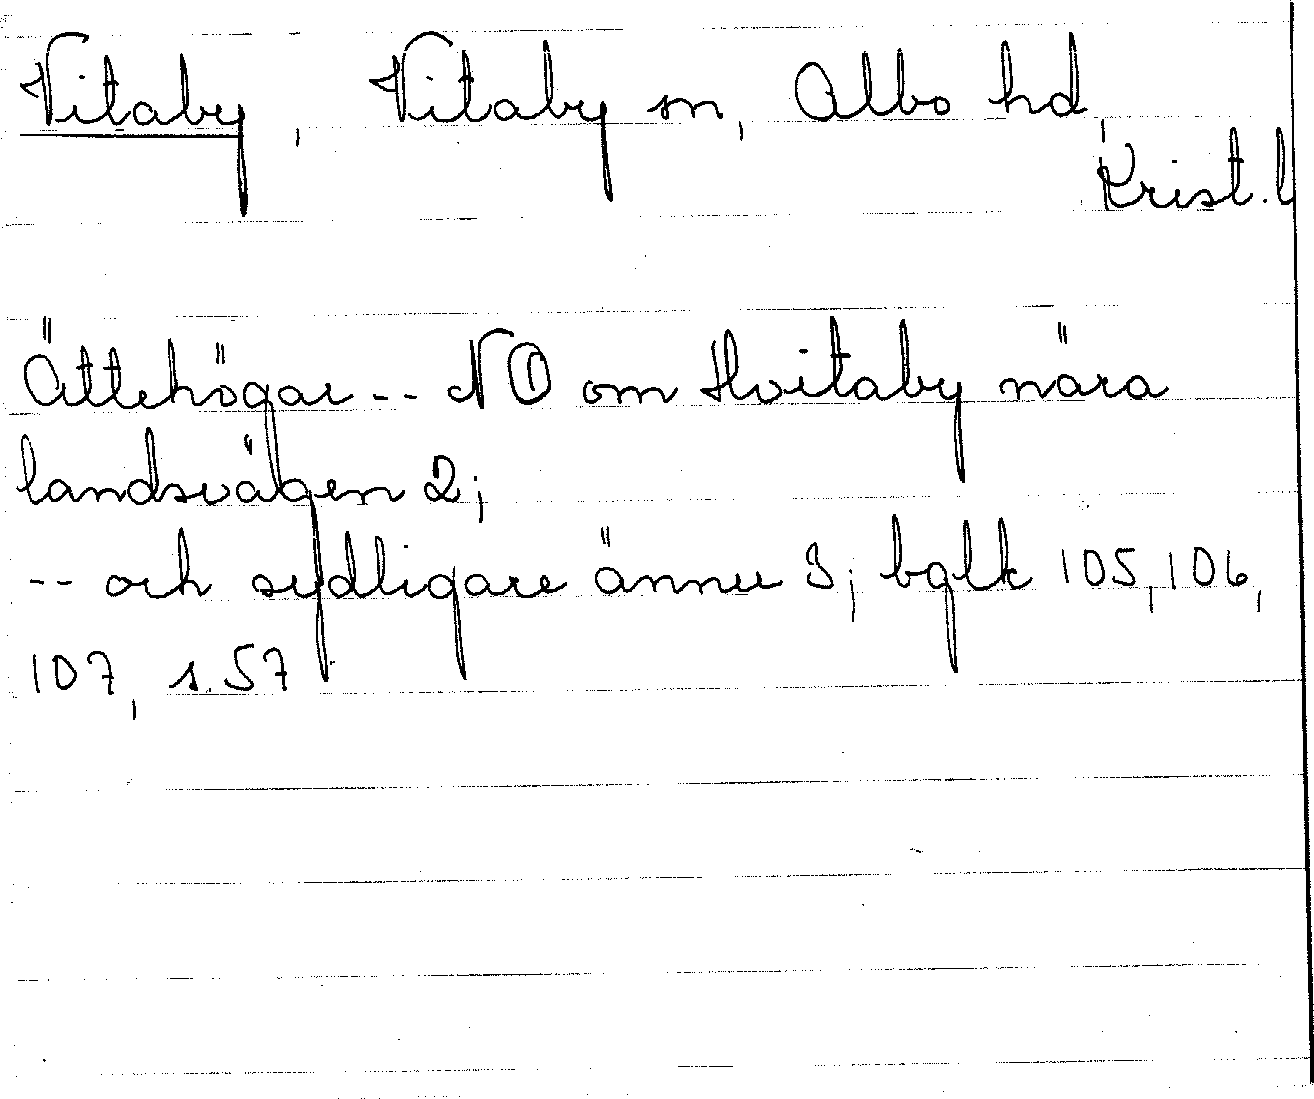 Vitaby, Vitaby sn, Albo hd,
Krist. l
Ättehögar -- NO om Hvitaby nära
landsvägen 2;
-- och sydligare ännu 3; bglk 105, 106,
107, s. 57